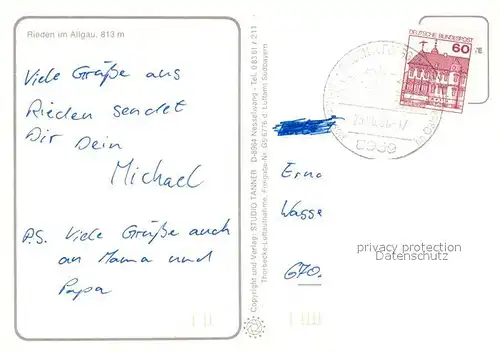 Rieden im Allgäu, 813 m
Viele Grüße aus
Rieden sendet
Dir Dein
Michael
P.S. Viele Grüße auch
an Mama und
Papa
Copyright und Verlag: STUDIO TANNER D-8964 Nesselwang - Tel. 0 83 61 / 2 11
Thorbecke-Luftaufnahme, Freigabe-Nr. d. Luftamt Südbayern
DEUTSCHE BUNDESPOST
60
8959
Erne
Wasse
670
privacy protection
Datenschutz